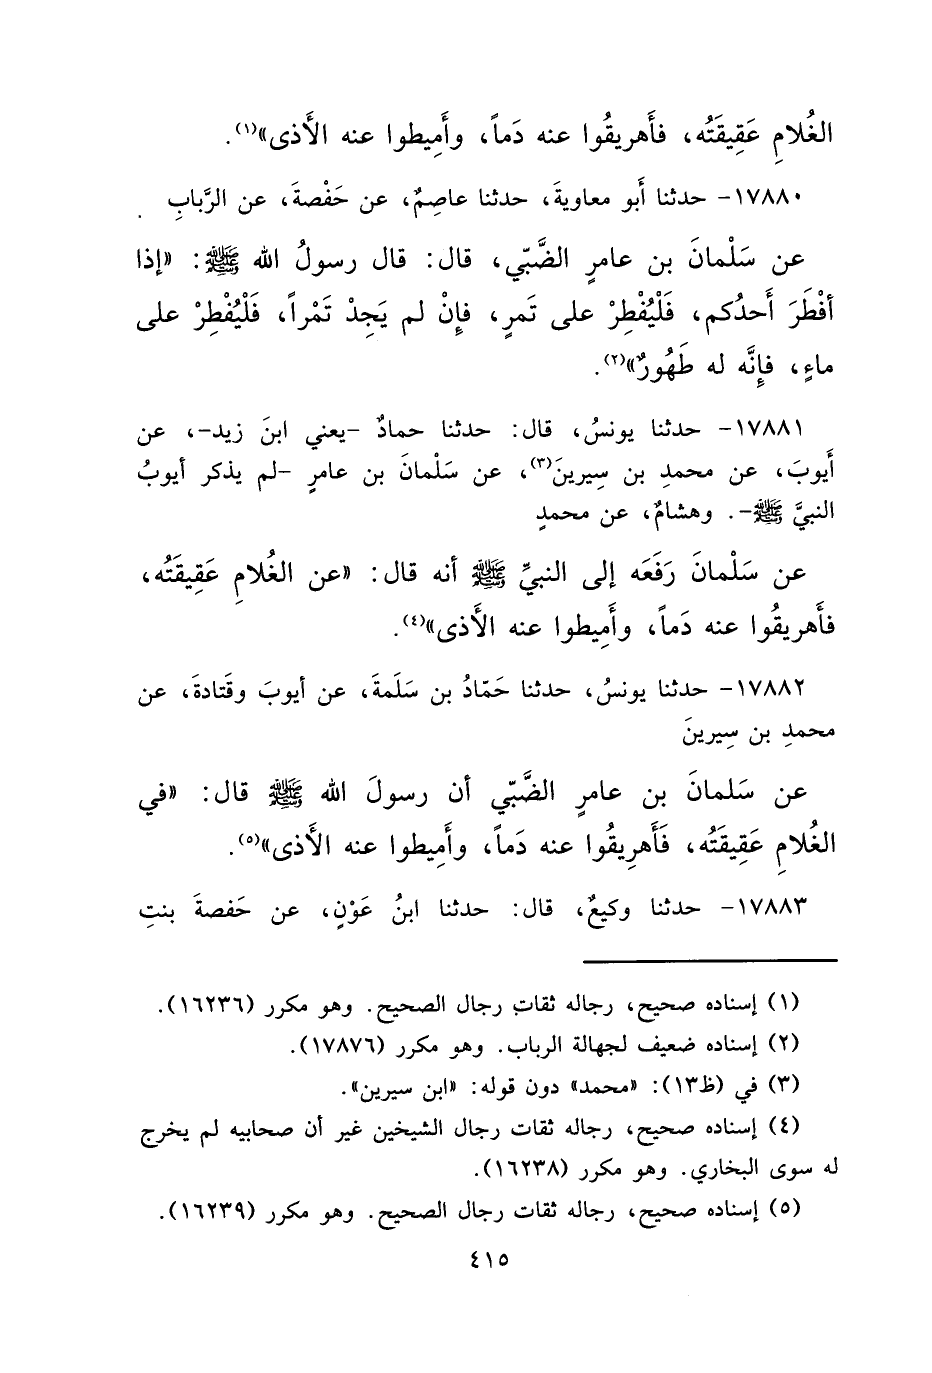 الغُلامِ عَقِيقَتُه، فأَهريقُوا عنه دَماً، وأَمِيطوا عنه الأَذى»(١).
١٧٨٨٠- حدثنا أَبو معاويةَ، حدثنا عاصِمٌ، عن حَفْصةَ، عن الرَّبابِ
عن سَلْمانَ بن عامرٍ الضَّبّي، قال: قال رسولُ الله ﷺ: «إذا
أفْطَرَ أَحدُكم، فَلْيُفْطِرْ على تَمرٍ، فإِنْ لم يَجِدْ تَمْراً، فَلْيُفْطِرْ على
ماءٍ، فإِنَّه له طَهُورٌ»(٢).
١٧٨٨١- حدثنا يونسُ، قال: حدثنا حمادٌ -يعني ابنَ زيد-، عن
أَيوبَ، عن محمدِ بن سِيرينَ(٣)، عن سَلْمانَ بن عامرٍ -لم يذكر أيوبُ
النبيَّ ﷺ-. وهشامٌ، عن محمدٍ
عن سَلْمانَ رَفَعَه إلى النبيِّ ﷺ أنه قال: «عن الغُلامِ عَقِيقَتُه،
فأَهريقُوا عنه دَماً، وأَمِيطوا عنه الأَذى»(٤).
١٧٨٨٢- حدثنا يونسُ، حدثنا حَمّادُ بن سَلَمةَ، عن أيوبَ وقَتادةَ، عن
محمدِ بن سِيرينَ
عن سَلمانَ بن عامرٍ الضَّبّي أن رسولَ الله ﷺ قال: «في
الغُلامِ عَقِيقَتُه، فَأَهرِيقُوا عنه دَماً، وأَمِيطوا عنه الأَذى»(٥).
١٧٨٨٣- حدثنا وكيعٌ، قال: حدثنا ابنُ عَوْنٍ، عن حَفصةَ بنتِ
(١) إسناده صحيح، رجاله ثقات رجال الصحيح. وهو مكرر (١٦٢٣٦).
(٢) إسناده ضعيف لجهالة الرباب. وهو مكرر (١٧٨٧٦).
(٣) في (ظ١٣): «محمد» دون قوله: «ابن سيرين».
(٤) إسناده صحيح، رجاله ثقات رجال الشيخين غير أن صحابيه لم يخرج
له سوى البخاري. وهو مكرر (١٦٢٣٨).
(٥) إسناده صحيح، رجاله ثقات رجال الصحيح. وهو مكرر (١٦٢٣٩).
٤١٥